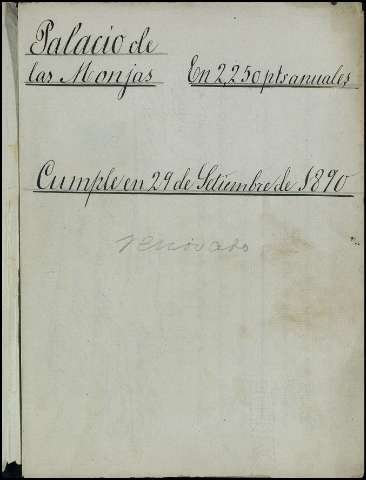 Palacio de
las Monjas En 2,250 pts anuales
Cumple en 29 de Setiembre de 1890
renovado